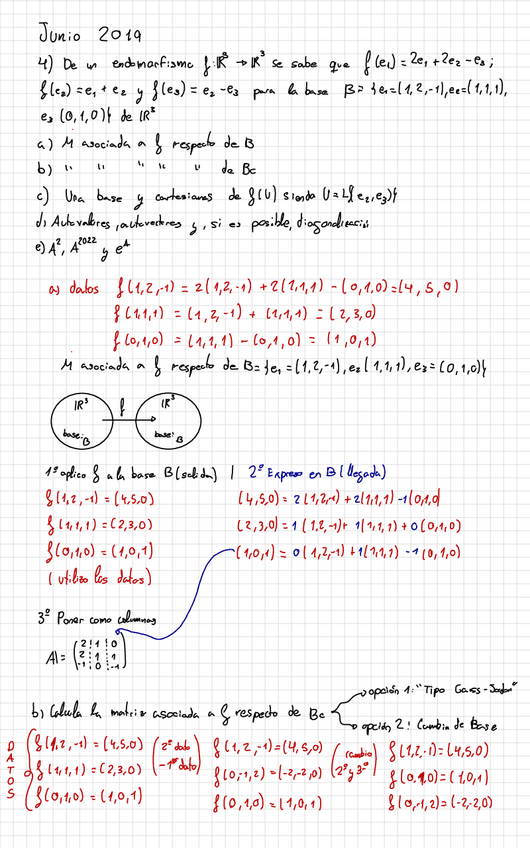 Junio 2019
4) De un endomorfismo f: ℝ³ → ℝ³ se sabe que f(e₁) = 2e₁ + 2e₂ - e₃ ;
f(e₂) = e₁ + e₂ y f(e₃) = e₂ - e₃ para la base B = {e₁=(1,2,-1), e₂=(1,1,1),
e₃ (0,1,0)} de ℝ³
a) M asociada a f respecto de B
b) " " " " " de Bc
c) Una base y cartesianas de f(U) siendo U = L{e₂, e₃}
d) Autovalores, autovectores y, si es posible, diagonalización
e) A², A²⁰²² y eᴬ
a) datos f(1,2,-1) = 2(1,2,-1) + 2(1,1,1) - (0,1,0) = (4,5,0)
f(1,1,1) = (1,2,-1) + (1,1,1) = (2,3,0)
f(0,1,0) = (1,1,1) - (0,1,0) = (1,0,1)
M asociada a f respecto de B = {e₁ = (1,2,-1), e₂(1,1,1), e₃ = (0,1,0)}
ℝ³ f ℝ³
base: B base: B
1º aplico f a la base B (salida) | 2º Expreso en B (llegada)
f(1,2,-1) = (4,5,0) (4,5,0) = 2(1,2,-1) + 2(1,1,1) -1(0,1,0)
f(1,1,1) = (2,3,0) (2,3,0) = 1(1,2,-1) + 1(1,1,1) + 0(0,1,0)
f(0,1,0) = (1,0,1) (1,0,1) = 0(1,2,-1) + 1(1,1,1) -1(0,1,0)
(utilizo los datos)
3º Poner como columnas
A = ( 2 1 0
2 1 1
-1 0 -1 )
opción 1: "Tipo Gass-Jordan"
b) Calcula la matriz asociada a f respecto de Bc
opción 2: Cambio de Base
DATOS
f(1,2,-1) = (4,5,0) (2º dato f(1,2,-1) = (4,5,0) (cambio f(1,2,-1) = (4,5,0)
f(1,1,1) = (2,3,0) -1º dato) f(0,-1,2) = (-2,-2,0) 2º y 3º) f(0,1,0) = (1,0,1)
f(0,1,0) = (1,0,1) f(0,1,0) = (1,0,1) f(0,-1,2) = (-2,-2,0)